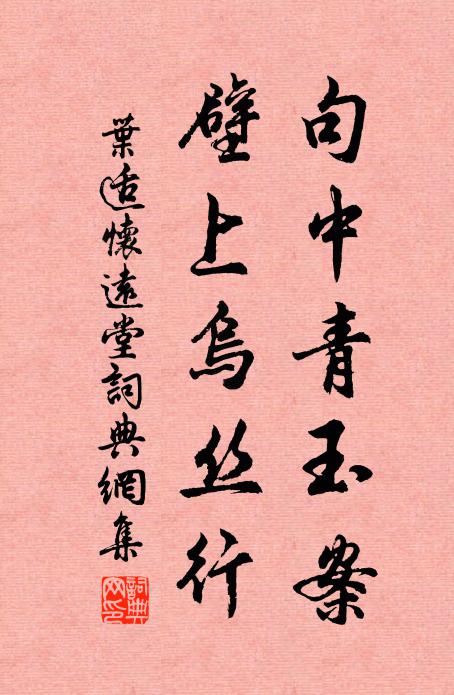 句中青玉案
壁上烏丝行
葉适懷遠堂詞典網集
詞典网印